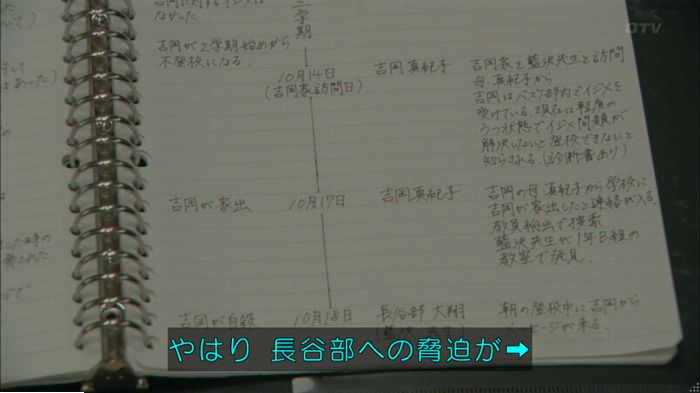 DTV
吉岡に対するイジメは
なかった
二学期
吉岡が2学期始めから
不登校になる。
10月14日
(吉岡家訪問日)
吉岡真紀子
吉岡家を藍沢先生と訪問
母、真紀子から
吉岡はバスケ部内でイジメを
受けている。現在は軽度の
うつ状態でイジメ問題が
解決しないと登校できないと
知らされる。(診断書あり)
吉岡が家出
10月17日
吉岡真紀子
吉岡の母 真紀子から学校に
吉岡が家出したと連絡が入る。
教員総出で捜索
藍沢先生が1年B組の
教室で発見
吉岡が自殺
10月18日
長谷部 大翔
(藍沢先生)
朝の登校中に吉岡から
メッセージが来る。
やはり 長谷部への脅迫が➡